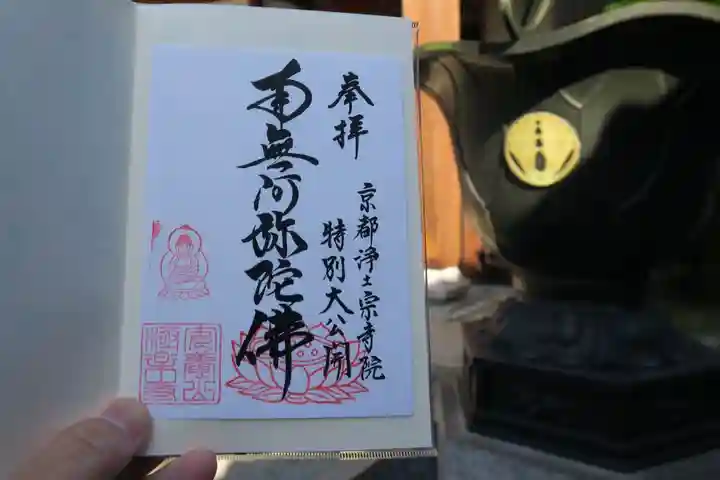 奉拝
京都浄土宗寺院
特別大公開
南無阿弥陀佛
極楽寺